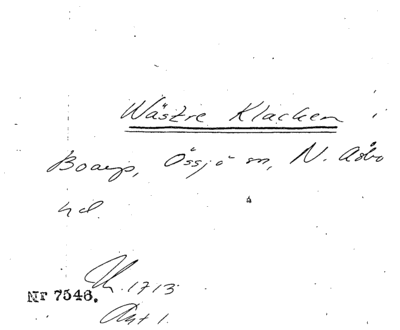 Wästre Klacken
Boarp, Össjö sn, N. Åsbo
hd.
Uh. 1713
Nr 7546.
Akt 1.